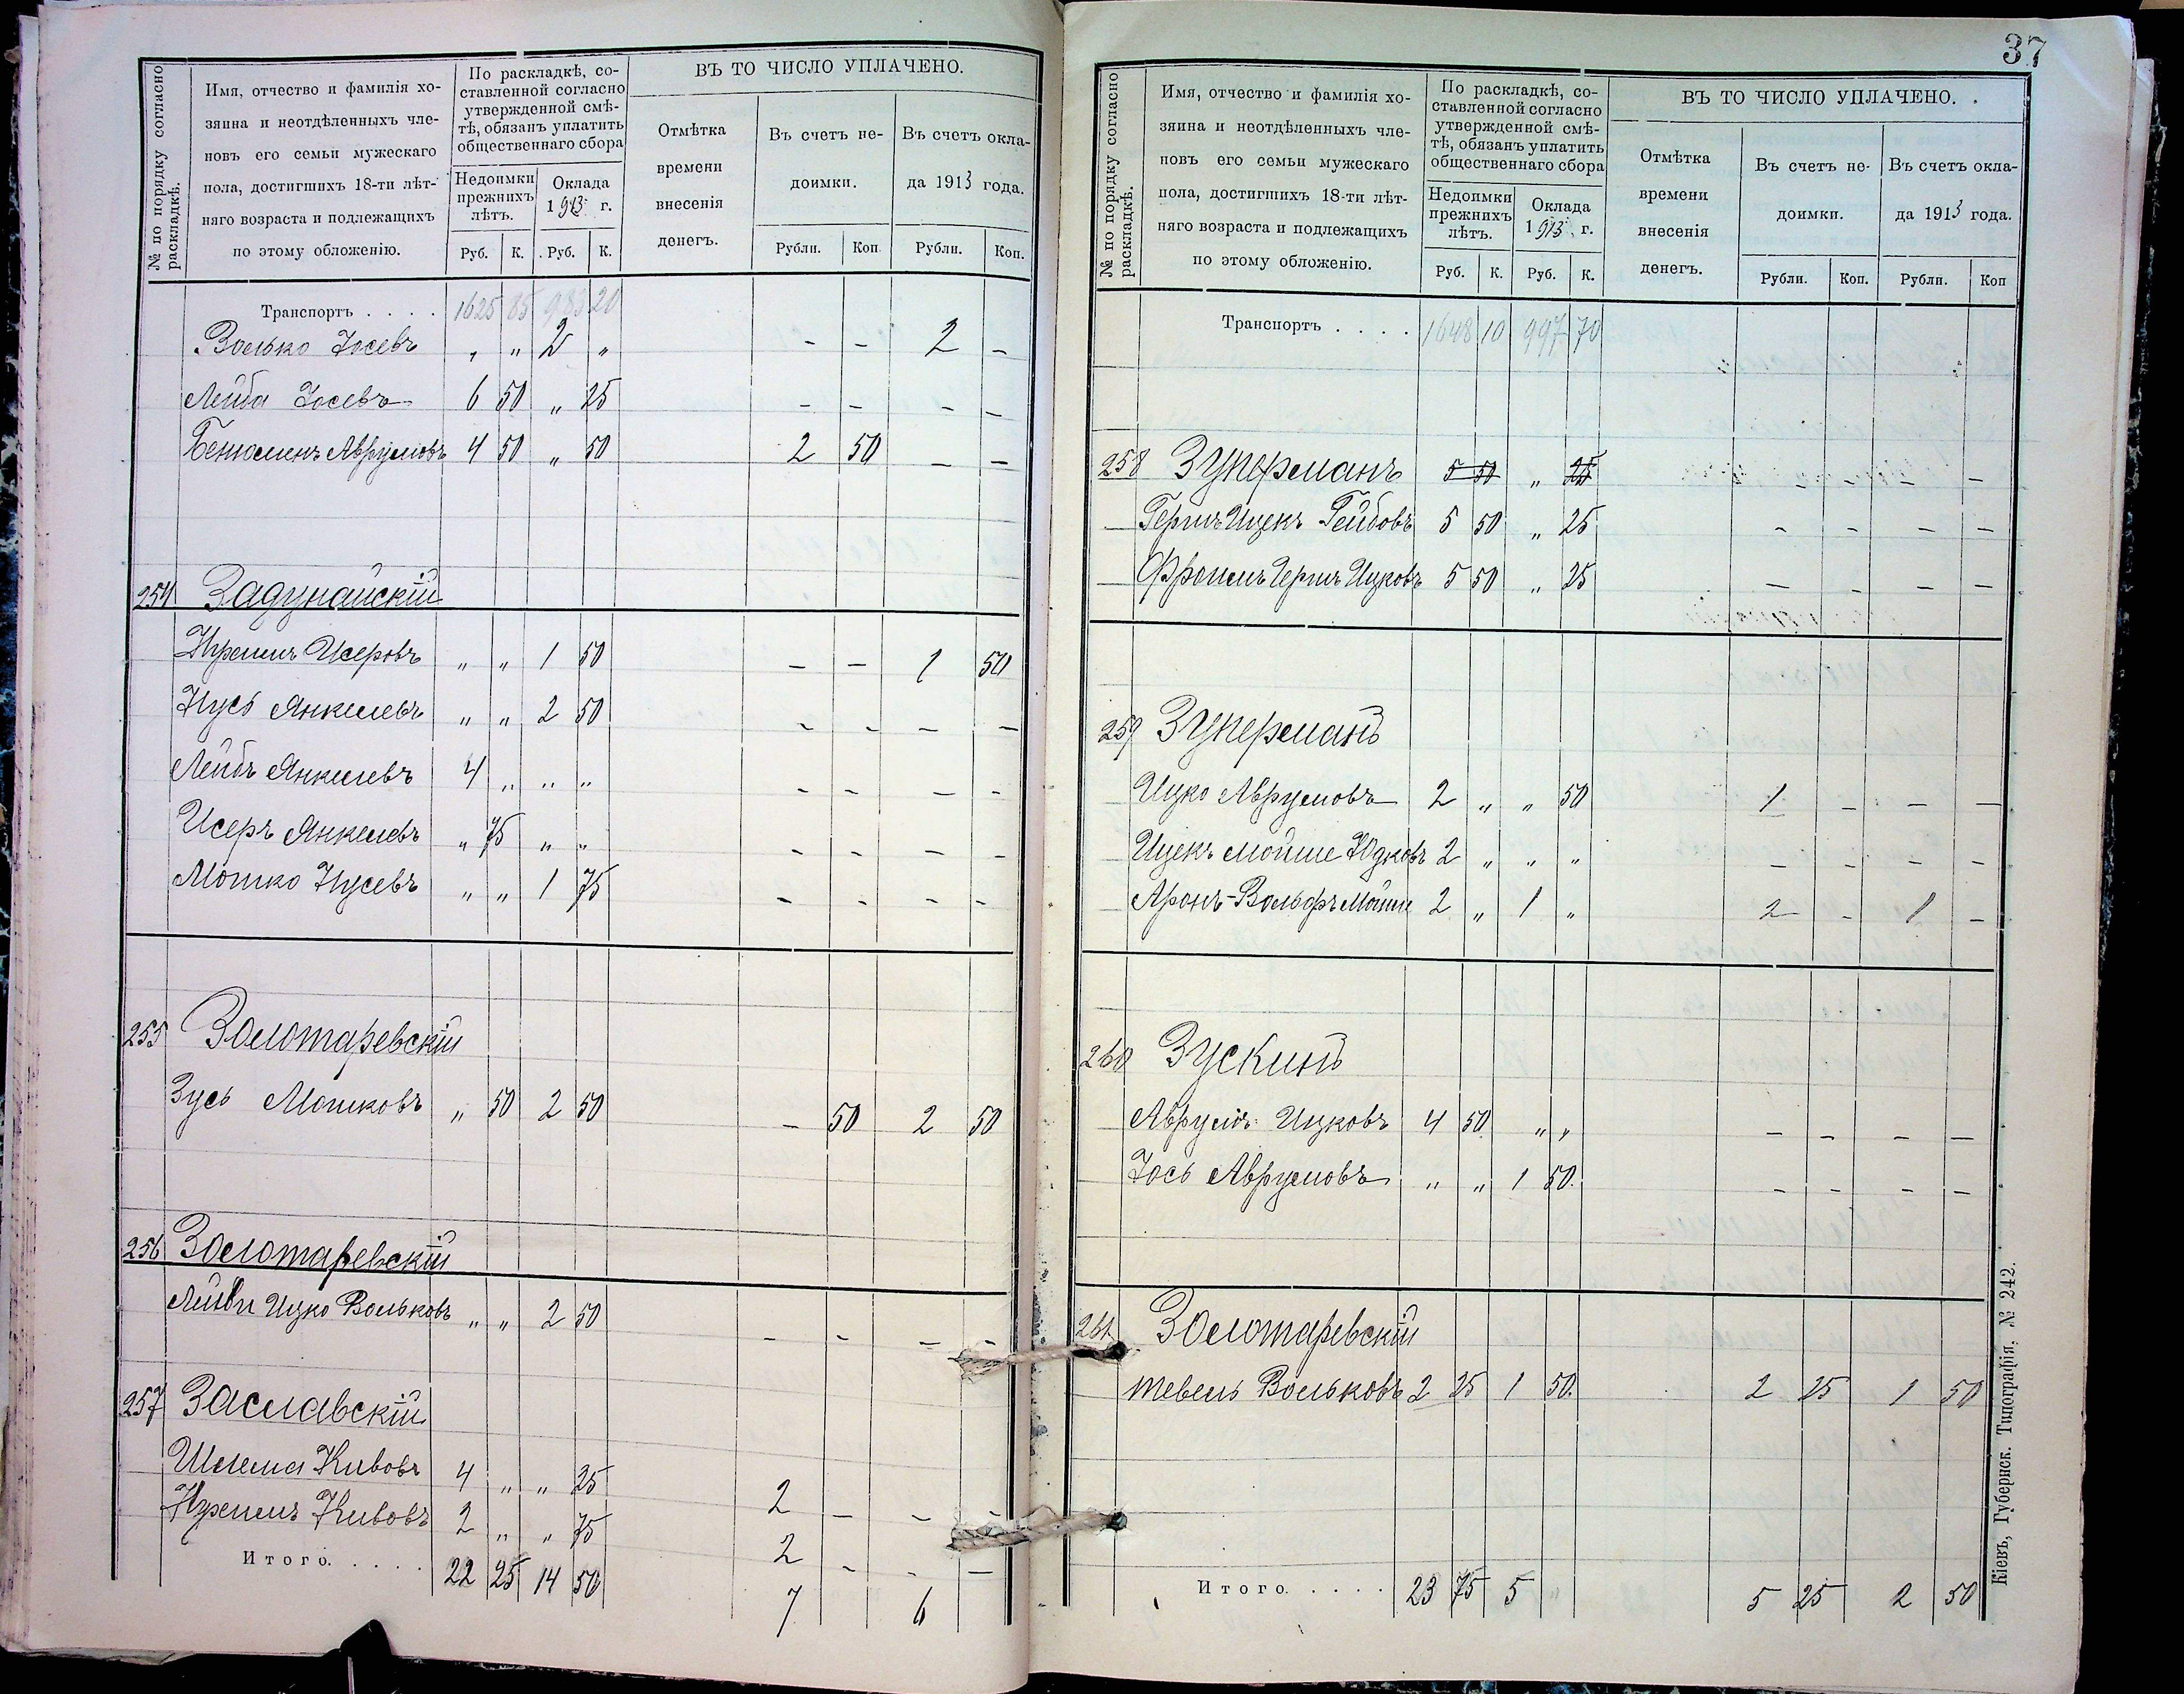 № по порядку согласно раскладкѣ.
Имя, отчество и фамилія хо-
зяина и неотдѣленныхъ чле-
новъ его семьи мужескаго
пола, достигшихъ 18-ти лѣт-
няго возраста и подлежащихъ
по этому обложенію.
По раскладкѣ, со-
ставленной согласно
утвержденной смѣ-
тѣ, обязанъ уплатить
общественнаго сбора
Недоимки прежнихъ лѣтъ.
Оклада 1913 г.
Руб. К. Руб. К.
ВЪ ТО ЧИСЛО УПЛАЧЕНО.
Отмѣтка
времени
внесенія
денегъ.
Въ счетъ не-
доимки.
Въ счетъ окла-
да 1913 года.
Рубли. Коп. Рубли. Коп.
Транспортъ . . . . 1625 85 983 20
Волько Іосевъ „ „ 2 „ - - 2 -
Лейба Іосевъ 6 50 „ 25 - - - -
Бенюменъ Аврумовъ 4 50 „ 50 2 50 - -
254 Задунайскій
Исеровъ „ „ 1 50 - - 1 50
Нусь Янкелевъ „ „ 2 50 - - - -
Лейбъ Янкелевъ 4 „ „ „ - - - -
Исеръ Янкелевъ „ 75 „ „ - - - -
Мошко Нусевъ „ „ 1 75 - - - -
255 Золотаревскій
Зусь Мошковъ „ 50 2 50 - 50 2 50
256 Золотаревскій
Ицко Вольковъ „ „ 2 50 - - - -
257 Заславскій
Шлема Кивовъ 4 „ „ 25 2 - - -
Кивовъ 2 „ „ 75 2 - - -
Итого. . . . . 22 25 14 50 7 6
37
№ по порядку согласно раскладкѣ.
Имя, отчество и фамилія хо-
зяина и неотдѣленныхъ чле-
новъ его семьи мужескаго
пола, достигшихъ 18-ти лѣт-
няго возраста и подлежащихъ
по этому обложенію.
По раскладкѣ, со-
ставленной согласно
утвержденной смѣ-
тѣ, обязанъ уплатить
общественнаго сбора
Недоимки прежнихъ лѣтъ.
Оклада 1913 г.
Руб. К. Руб. К.
ВЪ ТО ЧИСЛО УПЛАЧЕНО.
Отмѣтка
времени
внесенія
денегъ.
Въ счетъ не-
доимки.
Въ счетъ окла-
да 1913 года.
Рубли. Коп. Рубли. Коп
Транспортъ . . . . 1648 10 997 70
258 Зукерманъ 5 50 „ 25 - - - -
Гершъ Ицекъ Лейбовъ 5 50 „ 25 - - - -
Фроимъ Гершъ Ицковъ 5 50 „ 25 - - - -
259 Зукерманъ
Ицко Аврумовъ 2 „ „ 50 1 - - -
Ицекъ Мойше Юдковъ 2 „ „ „ - - - -
Аронъ-Вольфъ Мошк 2 „ 1 „ 2 - 1 -
260 Зускинъ
Аврумъ Ицковъ 4 50 „ „ - - - -
Іось Аврумовъ „ „ 1 50. - - - -
261 Золотаревскій
Тевель Вольковъ 2 25 1 50. 2 25 1 50
Итого. . . . . 23 75 5 „ 5 25 2 50
Кіевъ, Губернск. Типографія. № 242.